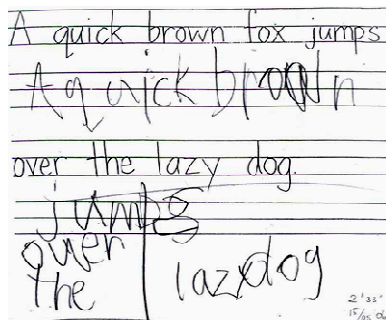 A quick brown fox jumps
A quick brown
over the lazy dog.
jumps
over
the lazy dog
2'33"